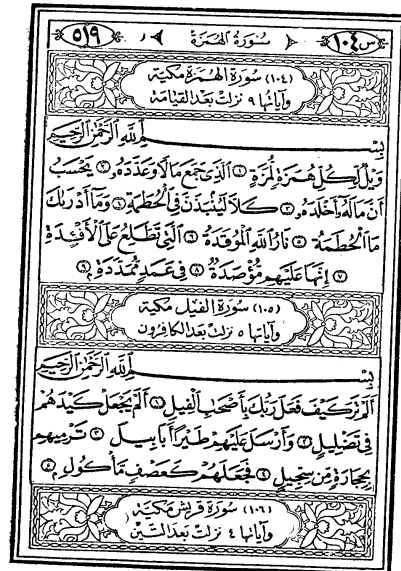 س ١٠٤ سورة الهمزة ٥١٩
(١٠٤) سورة الهمزة مكية
وآياتها ٩ نزلت بعد القيامة
بسم الله الرحمن الرحيم
وَيْلٌ لِكُلِّ هُمَزَةٍ لُمَزَةٍ ١ الَّذِى جَمَعَ مَالًا وَعَدَّدَهُ ٢ يَحْسَبُ
أَنَّ مَالَهُ أَخْلَدَهُ ٣ كَلَّا لَيُنْبَذَنَّ فِى الْحُطَمَةِ ٤ وَمَا أَدْرَىٰكَ
مَا الْحُطَمَةُ ٥ نَارُ اللَّهِ الْمُوقَدَةُ ٦ الَّتِى تَطَّلِعُ عَلَى الْأَفْئِدَةِ
٧ إِنَّهَا عَلَيْهِمْ مُؤْصَدَةٌ ٨ فِى عَمَدٍ مُمَدَّدَةٍ ٩
(١٠٥) سورة الفيل مكية
وآياتها ٥ نزلت بعد الكافرون
بسم الله الرحمن الرحيم
أَلَمْ تَرَ كَيْفَ فَعَلَ رَبُّكَ بِأَصْحَابِ الْفِيلِ ١ أَلَمْ يَجْعَلْ كَيْدَهُمْ
فِى تَضْلِيلٍ ٢ وَأَرْسَلَ عَلَيْهِمْ طَيْرًا أَبَابِيلَ ٣ تَرْمِيهِمْ
بِحِجَارَةٍ مِنْ سِجِّيلٍ ٤ فَجَعَلَهُمْ كَعَصْفٍ مَأْكُولٍ ٥
(١٠٦) سورة قريش مكية
وآياتها ٤ نزلت بعد التين